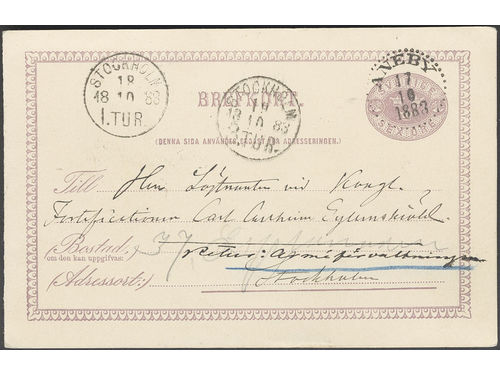 STOCKHOLM
18
18 10 83
1. TUR.
STOCKHOLM
18
18 10 83
TUR.
ANEBY
17
10
1883
BREFKORT
SEX ÖRE
(DENNA SIDA ANVÄNDES ENDAST TILL ADRESSERINGEN.)
Till Herr Löjtnanten vid Kongl.
Fortificationen Carl Axelheim
Bostad:
om den kan uppgifvas:
Retur: Arméförvaltningen
Adressort: Stockholm